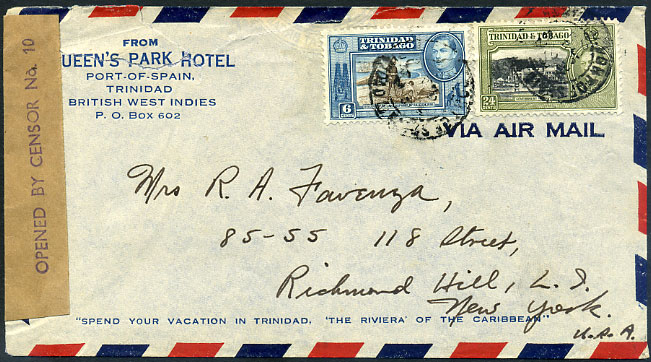 OPENED BY CENSOR No. 10
FROM
UEEN'S PARK HOTEL
PORT-OF-SPAIN,
TRINIDAD
BRITISH WEST INDIES
P. O. BOX 602
TRINIDAD
& TOBAGO
6
CENTS
TRINIDAD & TOBAGO
24
CENTS
VIA AIR MAIL
Mrs R. A. Favenza,
85-55 118 Street,
Richmond Hill, L. I.
New York.
U.S.A.
"SPEND YOUR VACATION IN TRINIDAD, 'THE RIVIERA' OF THE CARIBBEAN"